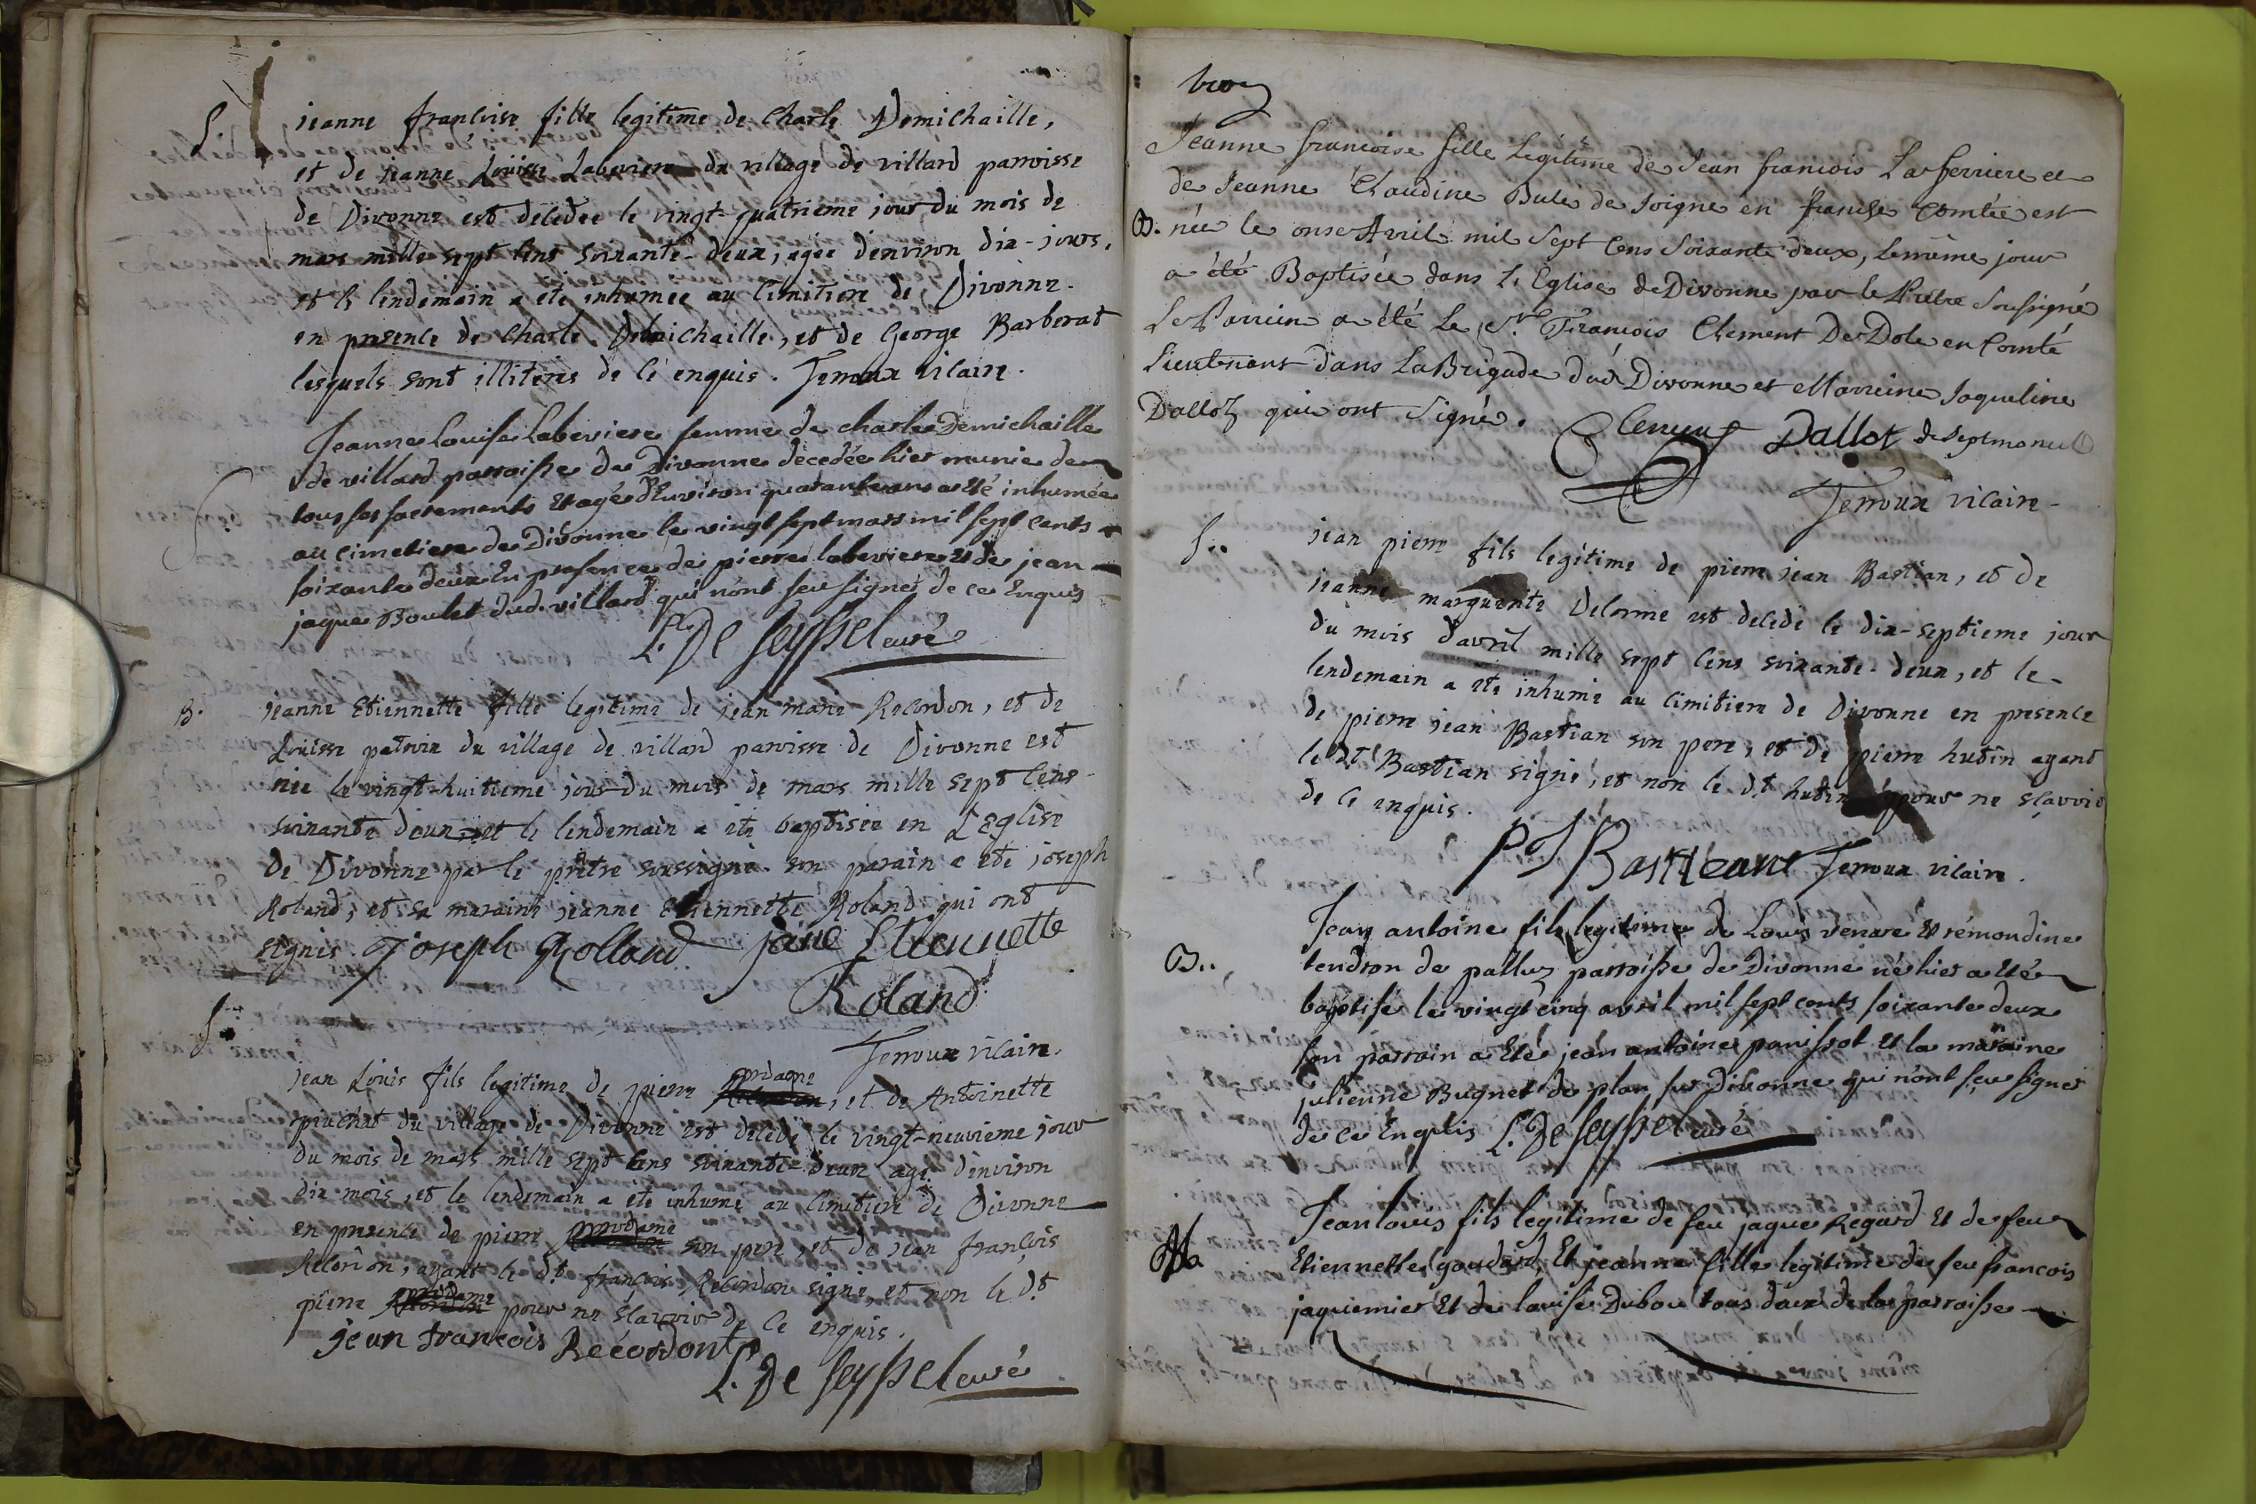 S.
jeanne françoise fille legitime de Charle Demichaille,
et de jeanne Loüisse Labeviere du village de villard parroisse
de Divonne est decedee le vingt-quatrieme jour du mois de
mars mille sept cens soixante-deux, agée denviron dix-jours,
et le lendemain a eté inhumee au cimitiere de Divonne.
en presence de Charle Demichaille, et de George Barberat
lesquels sont illiterés de ce enquis. Terroux vicaire.
S.
Jeanne Louise Labeviere femme de charle Demichaille
de villard parroisse de Divonne decedée hier munie de
tous ses sacrements et agée d'Environ quarante ans a eté inhumée
au cimetiere de Divonne le vingt sept mars mil sept cents
soixante deux En presence de pierre labeviere et de jean
jaque Boulet dud. villard qui n'ont seu signer de ce Enquis
L. De Seyssel curé
B.
jeanne Etiennette fille legitime de jean marie Recordon, et de
Loüisse du village de villard paroisse de Divonne est
née le vingt-huitieme jour du mois de mars mille sept cens
soixante deux, et le lendemain a eté baptisée en L'Eglise
de Divonne par le prêtre soussigné. son parain a eté joseph
Roland, et sa maraine jeanne Etiennette Roland qui ont
signés. Joseph Rolland jane Etiennette
Roland
S.
Terroux vicaire.
jean Louis fils legitime de pierre, et de Antoinette
pruchat du village de Divonne est decedé le vingt-neuvieme jour
du mois de mars mille sept cens soixante-deux agé d'environ
dix mois, et le lendemain a eté inhumé au cimitiere de Divonne
en presence de pierre son pere, et de jean françois
Recordon, ayant le dt françois Recordon signé, et non le dt
pierre pour ne sçavoir de ce enquis.
jean francois Récordont
L. De Seyssel curé
Jeanne francoise fille Legitime de Jean francois La ferriere et
de Jeanne Claudine Bule de Soigne en franche Comtée est
B. née le onse Avril mil Sept Cens Soixante deux, le même jour
a été Baptisée dans L'Eglise de Divonne par le Prêtre Soussigné
Le Parrein a été Le Sr. François Clement De Dole en Comté
Lieutenant dans La Brigade dud Divonne et Marreine Jaqueline
Dalloz qui ont Signé.
Clement Dallot de septmoncel
Terroux vicaire
S..
jean pierre fils legitime de pierre jean Bastian, et de
jeanne marguerite Delorme est decedé le dix-septieme jour
du mois d'avril mille sept cens soixante-deux, et le
lendemain a eté inhumé au cimitiere de Divonne en presence
de pierre jean Bastian son pere, et de pierre hutin ayant
le dt Bastian signé, et non le dt hutin pour ne sçavoir
de ce enquis.
Bastieant Terroux vicaire.
B..
Jean antoine fils legitime de Louis venare et rémondine
tendron de palluz parroisse de Divonne né hier a eté
baptisé le vingt cinq avril mil sept cents soixante deux
son parrain a Eté jean antoine panissot et la maraine
julienne Buquet de plan sur divonne qui n'ont sçeu signer
de ce Enquis L. De Seyssel curé
M.
Jean louis fils legitime de feu jaque Regard Et de feue
Etiennette goudard, Et jeanne fille legitime de feu francois
jaquemier Et de louise Dubou tous deux de la parroisse